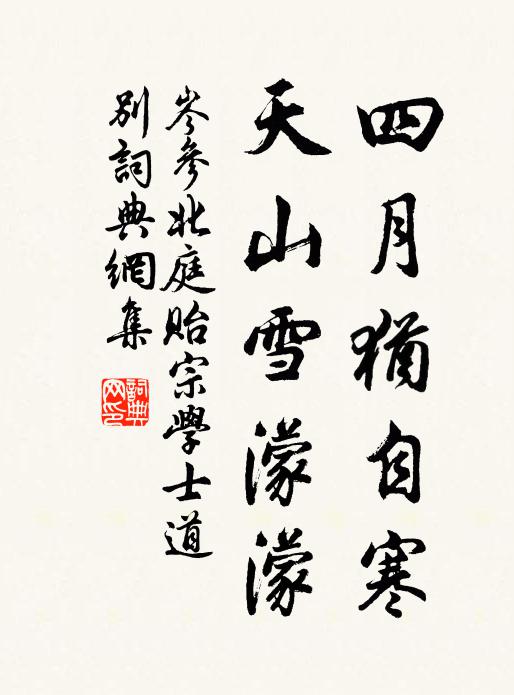 四月猶自寒
天山雪濛濛
岑參北庭貽宗學士道
別詞典網集
詞典
网印